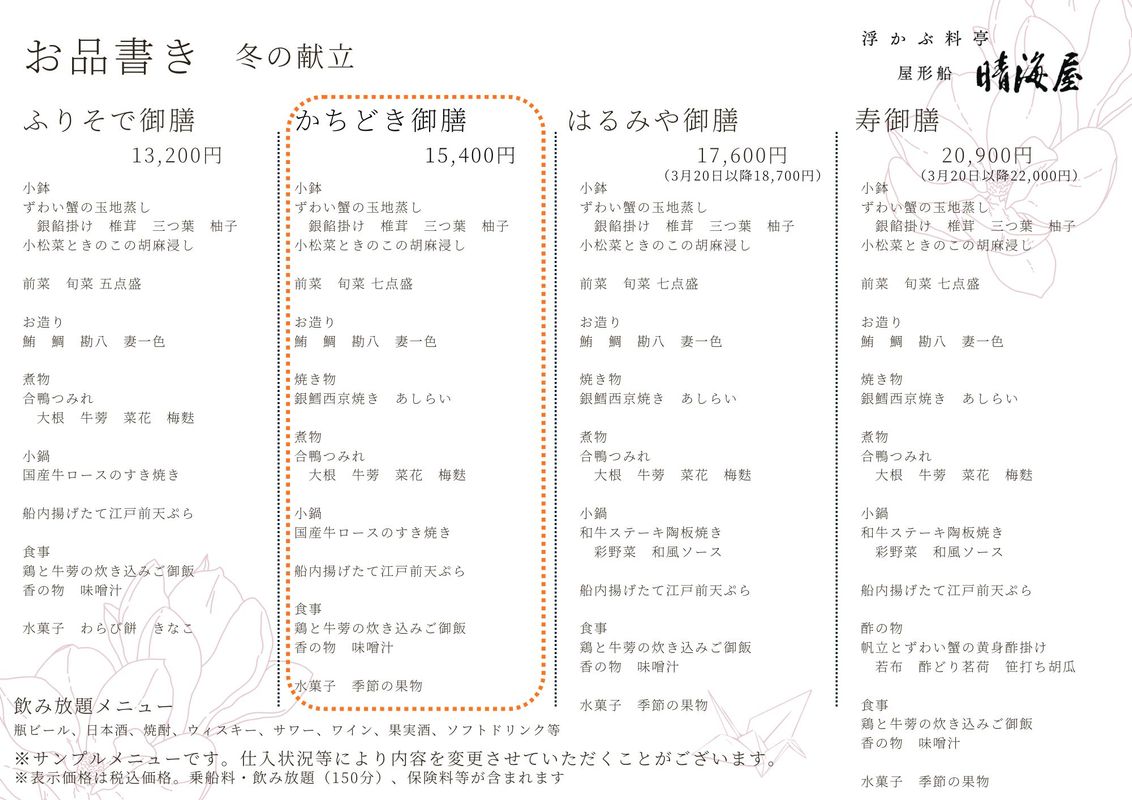 お品書き 冬の献立
浮かぶ料亭
屋形船 晴海屋
ふりそで御膳
13,200円
小鉢
ずわい蟹の玉地蒸し
銀餡掛け 椎茸 三つ葉 柚子
小松菜ときのこの胡麻浸し
前菜 旬菜 五点盛
お造り
鮪 鯛 勘八 妻一色
煮物
合鴨つみれ
大根 牛蒡 菜花 梅麩
小鍋
国産牛ロースのすき焼き
船内揚げたて江戸前天ぷら
食事
鶏と牛蒡の炊き込みご御飯
香の物 味噌汁
水菓子 わらび餅 きなこ
かちどき御膳
15,400円
小鉢
ずわい蟹の玉地蒸し
銀餡掛け 椎茸 三つ葉 柚子
小松菜ときのこの胡麻浸し
前菜 旬菜 七点盛
お造り
鮪 鯛 勘八 妻一色
焼き物
銀鱈西京焼き あしらい
煮物
合鴨つみれ
大根 牛蒡 菜花 梅麩
小鍋
国産牛ロースのすき焼き
船内揚げたて江戸前天ぷら
食事
鶏と牛蒡の炊き込みご御飯
香の物 味噌汁
水菓子 季節の果物
はるみや御膳
17,600円
（3月20日以降18,700円）
小鉢
ずわい蟹の玉地蒸し
銀餡掛け 椎茸 三つ葉 柚子
小松菜ときのこの胡麻浸し
前菜 旬菜 七点盛
お造り
鮪 鯛 勘八 妻一色
焼き物
銀鱈西京焼き あしらい
煮物
合鴨つみれ
大根 牛蒡 菜花 梅麩
小鍋
和牛ステーキ陶板焼き
彩野菜 和風ソース
船内揚げたて江戸前天ぷら
食事
鶏と牛蒡の炊き込みご御飯
香の物 味噌汁
水菓子 季節の果物
寿御膳
20,900円
（3月20日以降22,000円）
小鉢
ずわい蟹の玉地蒸し
銀餡掛け 椎茸 三つ葉 柚子
小松菜ときのこの胡麻浸し
前菜 旬菜 七点盛
お造り
鮪 鯛 勘八 妻一色
焼き物
銀鱈西京焼き あしらい
煮物
合鴨つみれ
大根 牛蒡 菜花 梅麩
小鍋
和牛ステーキ陶板焼き
彩野菜 和風ソース
船内揚げたて江戸前天ぷら
酢の物
帆立とずわい蟹の黄身酢掛け
若布 酢どり茗荷 笹打ち胡瓜
食事
鶏と牛蒡の炊き込みご御飯
香の物 味噌汁
水菓子 季節の果物
飲み放題メニュー
瓶ビール、日本酒、焼酎、ウィスキー、サワー、ワイン、果実酒、ソフトドリンク等
※サンプルメニューです。仕入状況等により内容を変更させていただくことがございます。
※表示価格は税込価格。乗船料・飲み放題（150分）、保険料等が含まれます